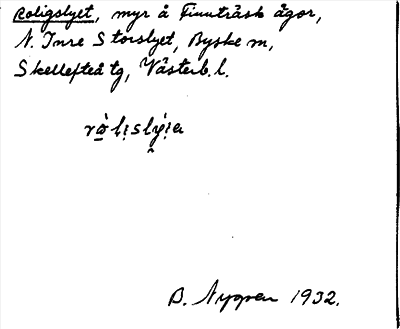 Roligslyet, myr å Finnträsk ägor,
N. Inre Storslyet, Byske sn,
Skellefteå tg, Västerb. l.
B. Nygren 1932.